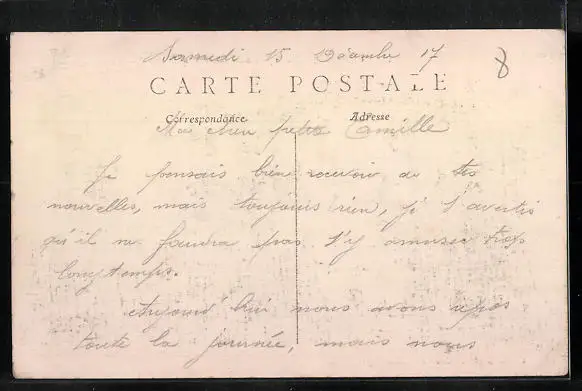 Samedi 15 Décembre 17
8
CARTE POSTALE
Correspondance Adresse
Ma chère petite Camille
Je pensais bien recevoir de tes
nouvelles, mais toujours rien, je t'avertis
qu'il ne faudra pas s'y amuser trop
longtemps.
Aujourd'hui nous avons repos
toute la journée, mais nous